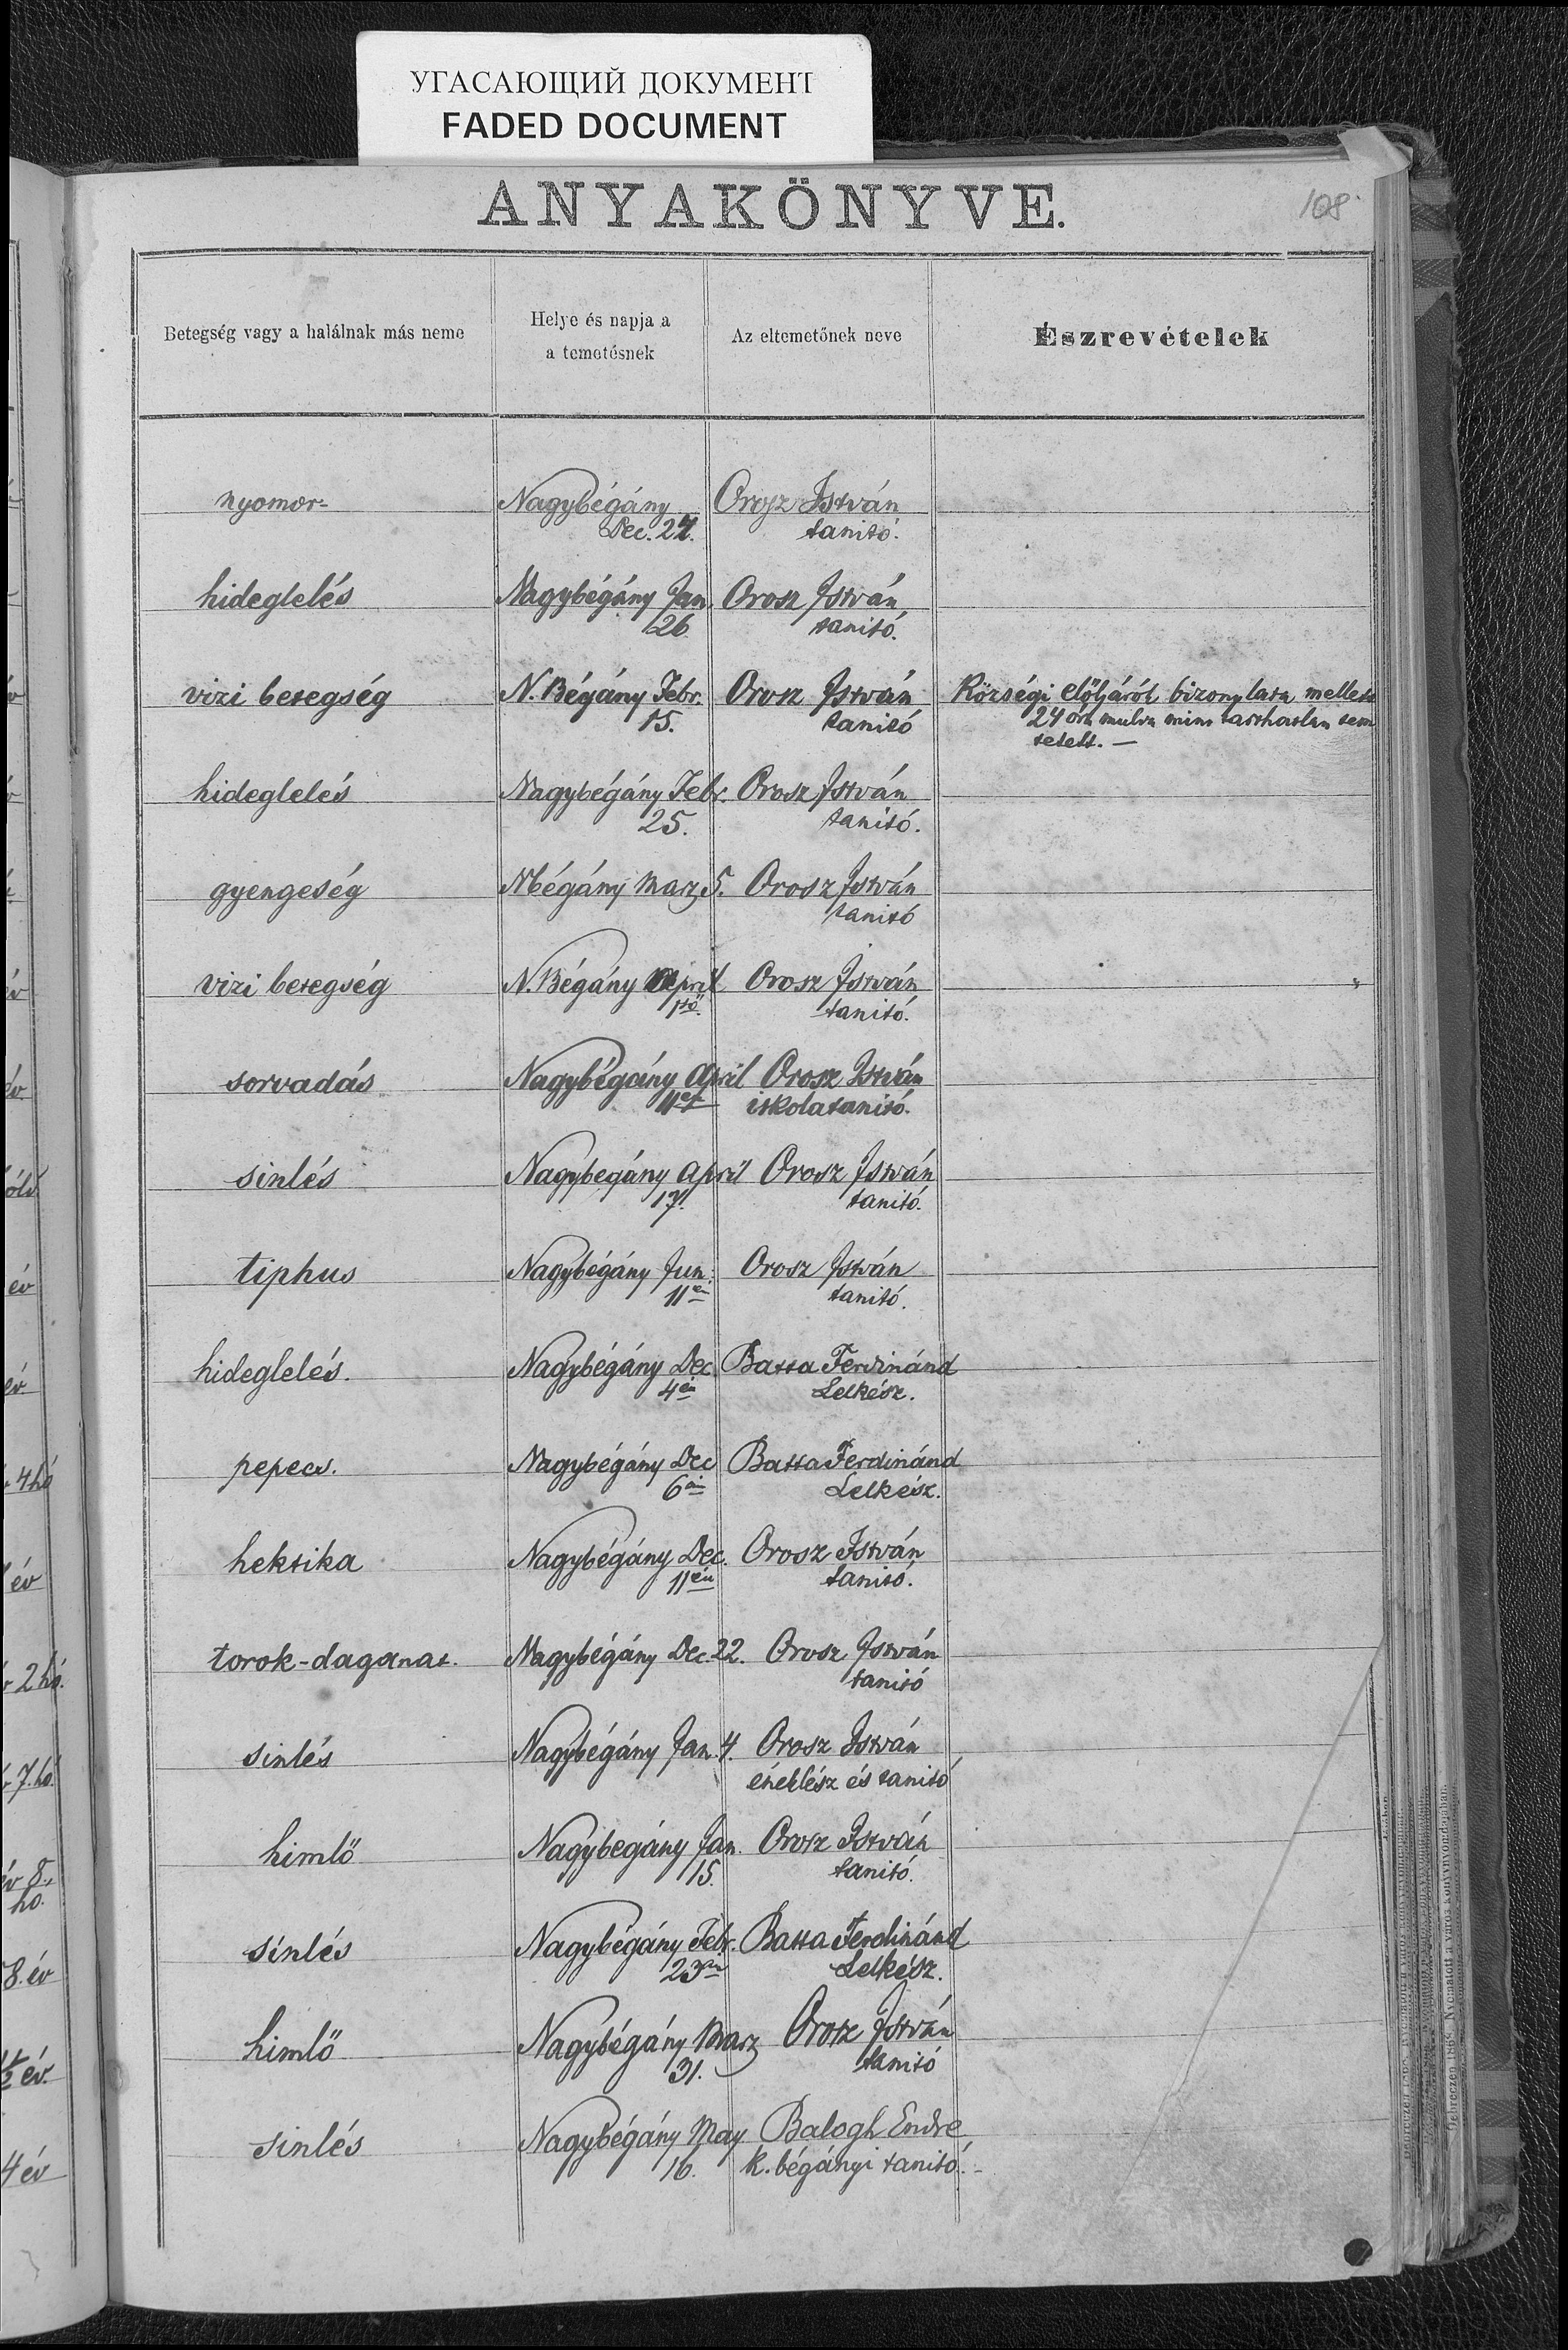 УГАСАЮЩИЙ ДОКУМЕНТ
FADED DOCUMENT
ANYAKÖNYVE.
108
Betegség vagy a halálnak más neme
Helye és napja a
a temetésnek
Az eltemetőnek neve
Észrevételek
nyomor-
Nagybégány
Dec. 27.
Orosz István
tanitó.
hideglelés
Nagybégány Jan.
26.
Orosz István
tanitó.
vizi betegség
N. Bégány Febr.
15.
Orosz István
tanitó
Községi előljáról bizonylata mellett
24 óra mulva mint tarthatlan tem
tetett. —
hideglelés
Nagybégány Febr.
25.
Orosz István
tanitó.
gyengeség
Nbégány Marz 5.
Orosz István
tanitó
vizi betegség
N. Bégány April
1ső.
Orosz István
tanitó.
sorvadás
Nagybégány April
Orosz István
iskolatanitó.
sinlés
Nagybegány April
17.
Orosz István
tanitó.
tiphus
Nagybégány Jun.
11én
Orosz István
tanitó.
hideglelés.
Nagybégány Dec.
4én
Batta Ferdinánd
Lelkész.
pepecs.
Nagybégány Dec
6án
Batta Ferdinánd
Lelkész.
hektika
Nagybégány Dec.
11én
Orosz István
tanitó.
torok-daganat.
Nagybégány Dec. 22.
Orosz István
tanitó
sinlés
Nagybégány Jan. 4.
Orosz István
éneklész és tanitó
himlő
Nagybegány Jan.
15.
Orosz István
tanitó.
sinlés
Nagybégány Febr.
23án
Batta Ferdinánd
Lelkész.
himlő
Nagybégány Marz
31.
Orosz István
tanitó
sinlés
Nagybégány May
16.
Balogh Endre
k. bégányi tanitó.-
év
év
4 hó
év
2 hó.
7. hó.
év 8.
ho.
8. év
½ év.
4 év